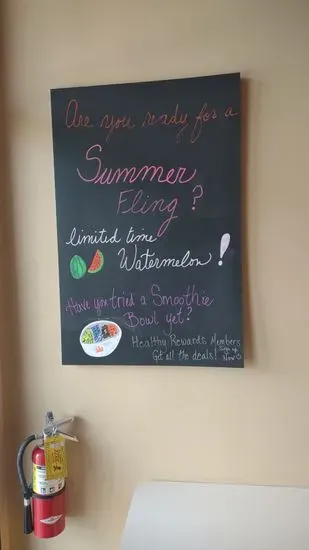 Are you ready for a
Summer
Fling?
limited time
Watermelon!
Have you tried a Smoothie
Bowl yet?
Healthy Rewards Members
Get all the deals! Sign up
Now